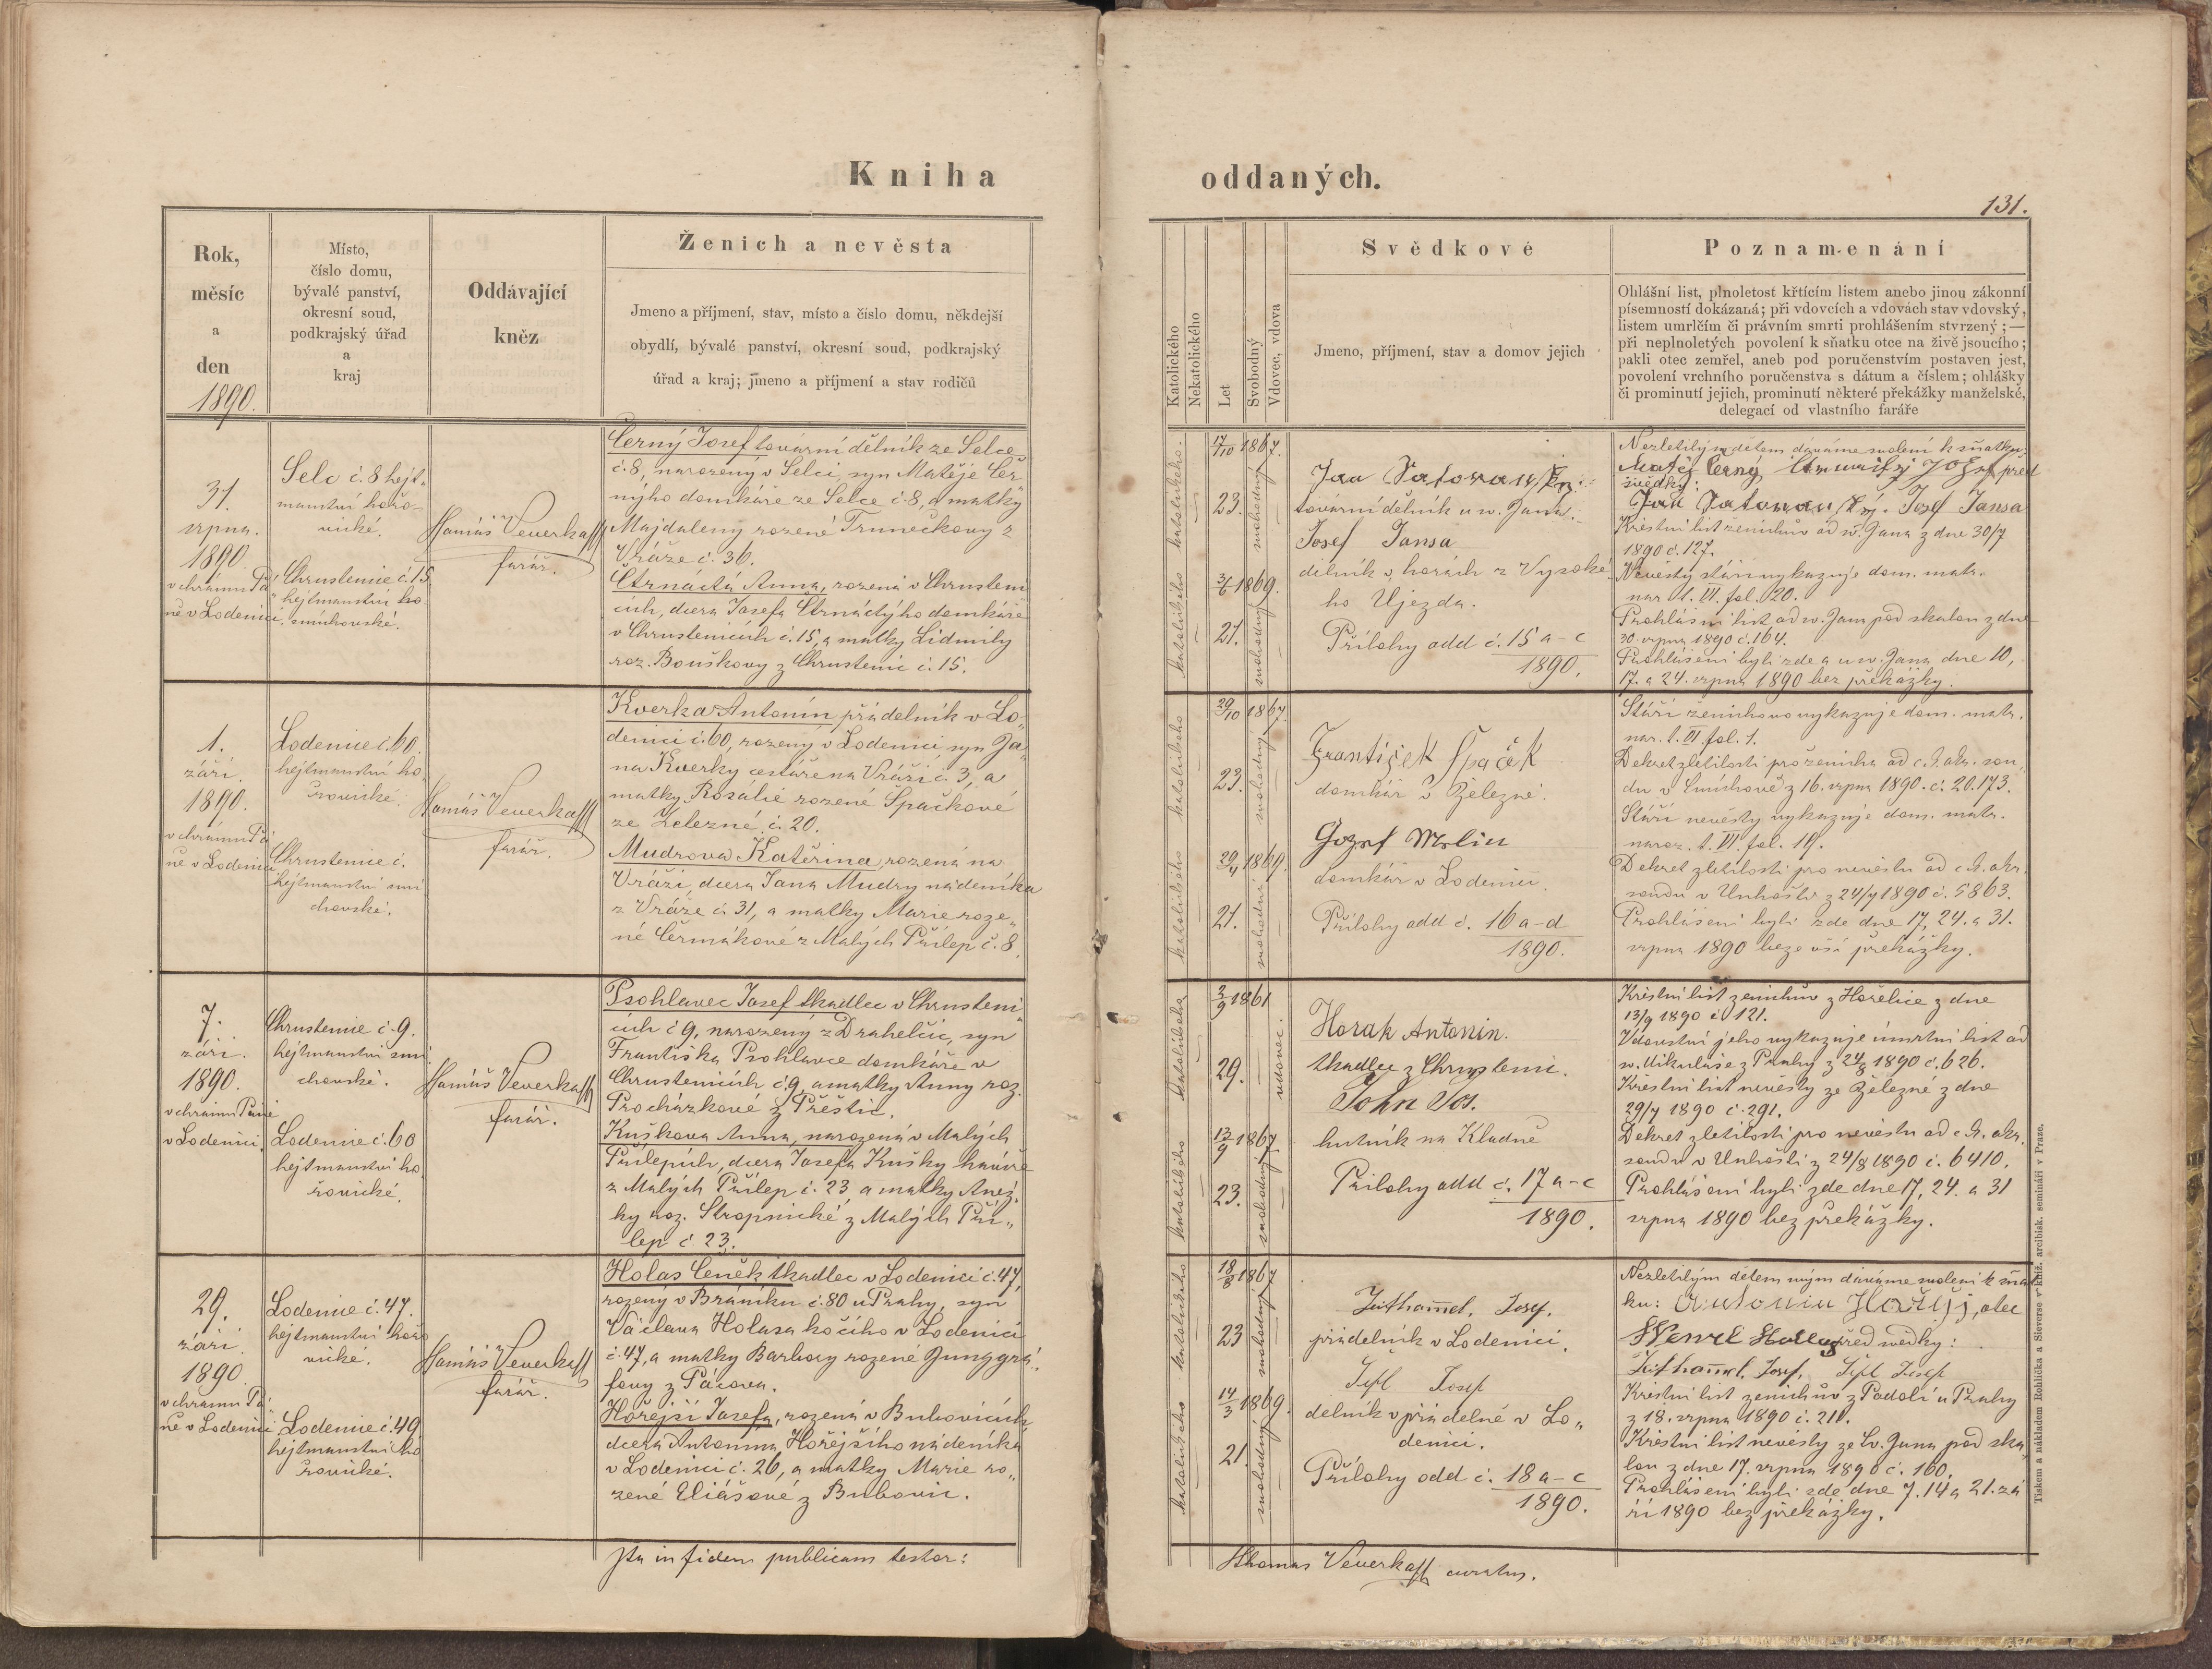 Kniha
Rok,
měsíc
a
den
1890.
Místo,
číslo domu,
bývalé panství,
okresní soud,
podkrajský úřad
a
kraj
Oddávající
kněz
Ženich a nevěsta
Jmeno a příjmení, stav, místo a číslo domu, někdejší
obydlí, bývalé panství, okresní soud, podkrajský
úřad a kraj; jmeno a příjmení a stav rodičů
31.
srpna.
1890
v chrámu Pá„
ně v Lodenici
Selc č. 8 hejt„
manství hořo-
vické.
Chrustenice č. 15
hejtmanství
smíchovské.
Veverka
farář.
Černý Josef tovární dělník ze Selce
č. 8, narozený v Selci, syn Matěje Čer„
nýho domkáře ze Selce č. 8, a matky
Majdaleny rozené Trunečkovy z
Vráže č. 36.
Čtrnáctá Anna, rozená v Chrusteni
cích, dcera Josefa Čtrnáctýho domkáře
v Chrustenicích č. 15, a matky Lidmily
roz. Bouškovy z Chrustenic č. 15.
1.
září.
1890.
v chrámu Pá
ně v Lodenici
Lodenice č. 60.
hejtmanství ho„
řovické.
Chrustenice č.
hejtmanství smí
chovské.
Veverka
farář.
Kverka Antonín přádelník v Lo„
denici č. 60, rozený v Lodenici syn Ja„
na Kverky cestáře na Vráži č. 3, a
matky Rosalie rozené Špačkové
ze Železné č. 20.
Mudrova Kateřina, rozená na
Vráži, dcera Jana Mudry nádeníka
z Vráže č. 31, a matky Marie roze„
né Čermákové z Malých Přílep č. 8.
7.
září.
1890.
v chrámu Páně
v Lodenici.
Chrustenice č. 9.
hejtmanství smí
chovské.
Lodenice č. 60
hejtmanství ho
řovické.
Veverka
farář.
Psohlavec Josef tkadlec v Chrusteni„
cích č 9, narozený z Drahelčic, syn
Františka Psohlavce domkáře v
Chrustenicích č. 9, a matky Anny roz.
Procházkové z Přeštic.
Kuškova Anna, narozená v Malých
Přílepích, dcera Josefa Kušky havíře
z Malých Přílep č. 23, a matky Anež„
ky roz. Stropnické z Malých Pří„
lep č 23.
29.
září.
1890
v chrámu Pá„
ně v Lodenici
Lodenice č. 47.
hejtmanství hořo
vické.
Lodenice č. 49.
hejtmanství ho
řovické.
Veverka
farář.
Holas Čeněk tkadlec v Lodenici č. 47,
rozený v Bráníku č. 80 u Prahy, syn
Václava Holasa kočího v Lodenici
č. 47, a matky Barbory rozené Junggrá„
fovy z Pácova.
Hořejší Josefa, rozená v Bubovicích
dcera Antonína Hořejšího nádeníka
v Lodenici č. 26, a matky Marie ro„
zené Eliášové z Bubovic.
Ita in fidem publicam testor:
oddaných.
131.
Katolického
Nekatolického
Let
Svobodný
Vdovec, vdova
Svědkové
Jmeno, příjmení, stav a domov jejich
Poznamenání
Ohlášní list, plnoletost křtícím listem anebo jinou zákonní
písemností dokázaná; při vdovcích a vdovách stav vdovský,
listem umrlčím či právním smrti prohlášením stvrzený; —
při neplnoletých povolení k sňatku otce na živě jsoucího;
pakli otec zemřel, aneb pod poručenstvím postaven jest,
povolení vrchního poručenstva s dátum a číslem; ohlášky
či prominutí jejich, prominutí některé překážky manželské,
delegací od vlastního faráře
katolického.
17/10 1867.
23.
svobodný
katolického
3/6 1869.
21.
svobodný
Jan
tovární dělník u sv. Jana.
Josef Jansa
dělník v horách z Vysoké
ho Ujezda.
Přílohy odd č. 15 a-c
1890.
Nezletilým dětem dáváme svolení k sňatku:
Matěj Černý, před
svědky:
Jan Josef Jansa
Křestní list ženichův od sv. Jana z dne 30/7
1890 č. 127.
Nevěsty stáří vykazuje dom. matr.
nar. t. VI. fol. 20.
Prohlášní list od sv. Jana pod skalou z dne
30. srpna 1890 č. 164.
Prohlášení byli zde a u sv. Jana dne 10,
17. a 24. srpna 1890 bez překážky.
katolického
29/10 1867.
23.
svobodný
katolického
29/4 1869.
21.
svobodná
František Špaček
domkář v Železné.
Jozef Melin
domkář v Lodenici.
Přílohy odd č. 16 a-d
1890.
Stáří ženichovo vykazuje dom. matr.
nar. t. VI. fol. 1.
Dekret zletilosti pro ženicha od c. k. okr. sou„
du v Smíchově z 16. srpna 1890. č. 20.173.
Stáří nevěsty vykazuje dom. matr.
naroz. t. VI. fol. 19.
Dekret zletilosti pro nevěstu od c. k. okr.
soudu v Unhošti z 24/7 1890 č. 5863.
Prohlášení byli zde dne 17, 24. a 31.
srpna 1890 beze vší překážky.
katolického
3/9 1861
29.
vdovec.
katolického
13/9 1867
23.
svobodný
Horak Antonin.
tkadlec z Chrustenic.
John Jos.
hutník na Kladně
Přílohy odd č. 17 a-c
1890.
Křestní list ženichův z Hořelice z dne
13/9 1890 č 121.
Vdovství jeho vykazuje úmrtní list od
sv. Mikuláše z Prahy z 24/8 1890 č. 626.
Křestní list nevěsty ze Železné z dne
29/7 1890 č. 291.
Dekret zletilosti pro nevěstu od c. k. okr.
soudu v Unhošti z 24/8 1890 č. 6410.
Prohlášení byli zde dne 17, 24. a 31
srpna 1890 bez překážky.
katolického
18/8 1867
23
svobodný
katolického
14/3 1869.
21.
svobodný
Josef.
přádelník v Lodenici.
Josef
dělník v přádelně v Lo„
denici.
Přílohy odd č. 18 a-c
1890.
Nezletilým dětem svým dáváme svolení k sňat
ku: Antonín, otec
Wenzl před svědky:
Josef,
Křestní list ženichův z Podolí u Prahy
z 18. srpna 1890 č. 211.
Křestní list nevěsty ze Sv. Jana pod ska„
lou z dne 17. srpna 1890 č. 160.
Prohlášení byli zde dne 7. 14 a 21. zá
ří 1890 bez překážky.
Thomas Veverka curatus.
Tiskem a nákladem Rohlíčka a Sieverse v kníž. arcibisk. semináři v Praze.